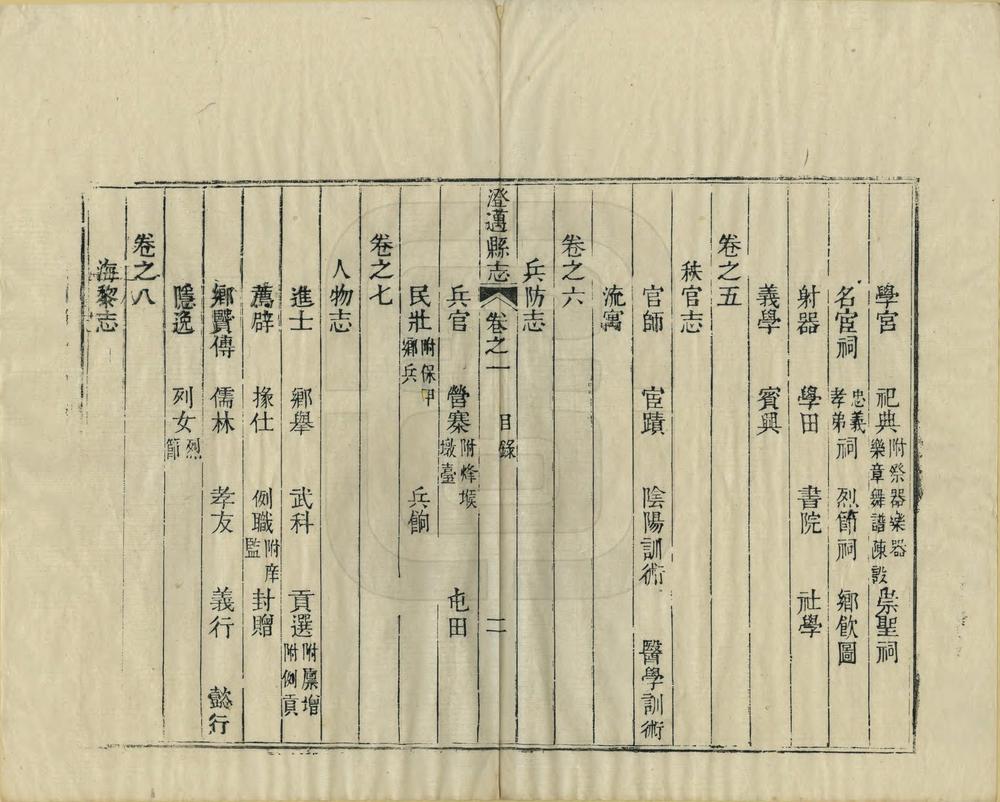 學宮 祀典 附祭器樂器樂章舞譜陳設 崇聖祠
名宦祠 忠義孝弟祠 烈節祠 鄉飲圖
射器 學田 書院 社學
義學 賓興
卷之五
秩官志
官師 宦蹟 陰陽訓術 醫學訓術
流寓
卷之六
兵防志
澄邁縣志 卷之一 目錄 二
兵官 營寨 附烽堠墩臺 屯田
民壯 附保甲鄉兵 兵餉
卷之七
人物志
進士 鄉舉 武科 貢選 附廩增附例貢
薦辟 掾仕 例職 附庠監 封贈
鄉賢傳 儒林 孝友 義行 懿行
隱逸 列女 烈節
卷之八
海黎志